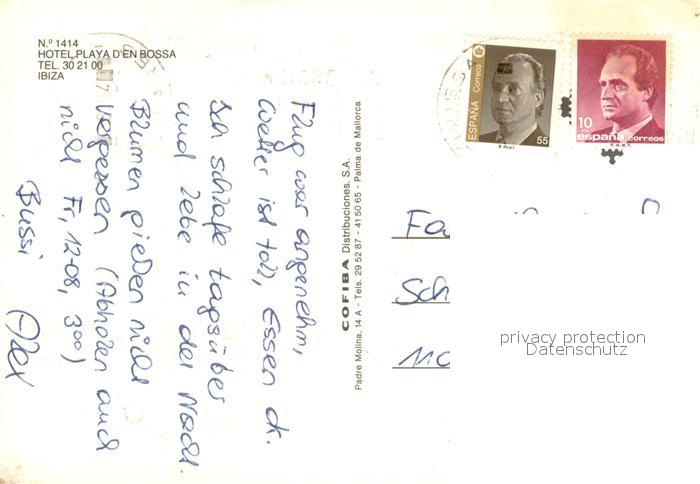 N.º 1414
HOTEL PLAYA D'EN BOSSA
TEL. 30 21 00
IBIZA
Flug war angenehm,
Wetter ist toll, Essen dt.
Ich schlafe tagsüber
und lebe in der Nacht.
Blumen gießen nicht
vergessen (Abholen auch
nicht Fr, 12.08, 3⁰⁰)
Bussi Alex
COFIBA Distribuciones, S.A.
Padre Molina, 14 A - Tels. 29 52 87 - 41 50 65 - Palma de Mallorca
ESPAÑA Correos
55
10
españa correos
F.N.M.T.
Fa
Sch
privacy protection
Datenschutz